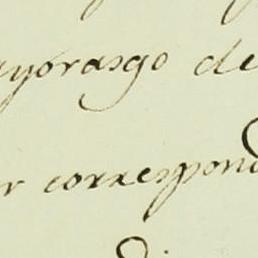 ayorasgo de
r correspond